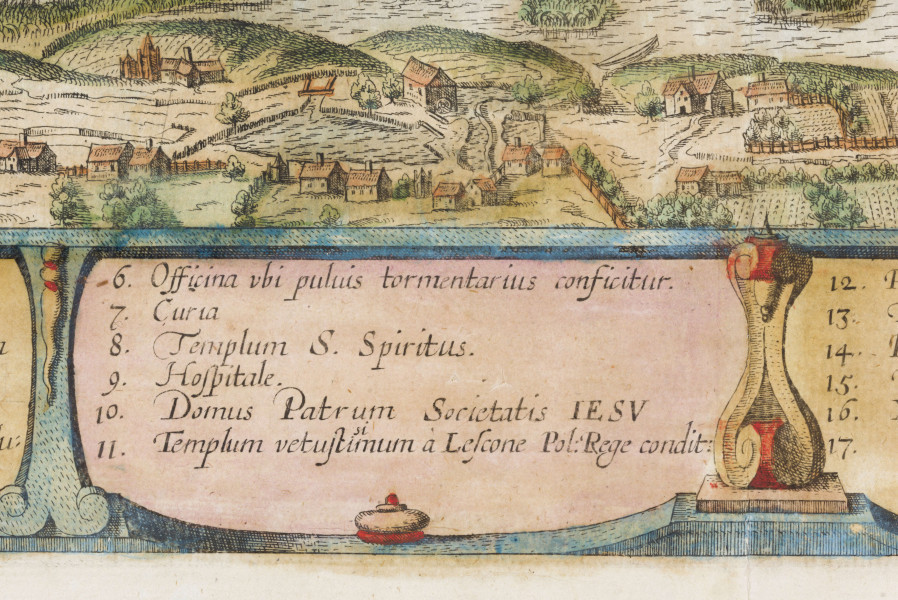 6. Officina vbi puluis tormentarius conficitur.
7. Curia
8. Templum S. Spiritus.
9. Hospitale.
10. Domus Patrum Societatis IESV
11. Templum vetustissimum à Lescone Pol: Rege condit:
12.
13.
14.
15.
16.
17.